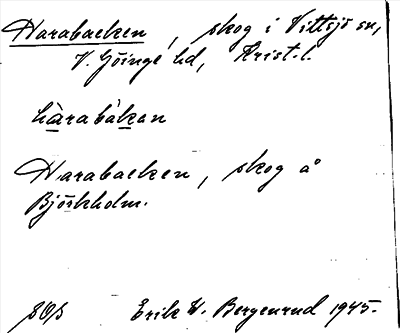 Harabacken, skog i Vittsjö sn,
V. Göinge hd, Krist. l.
hàrabàkan
Harabacken, skog å
Björkholm.
Erik W. Bergenrud 1945.